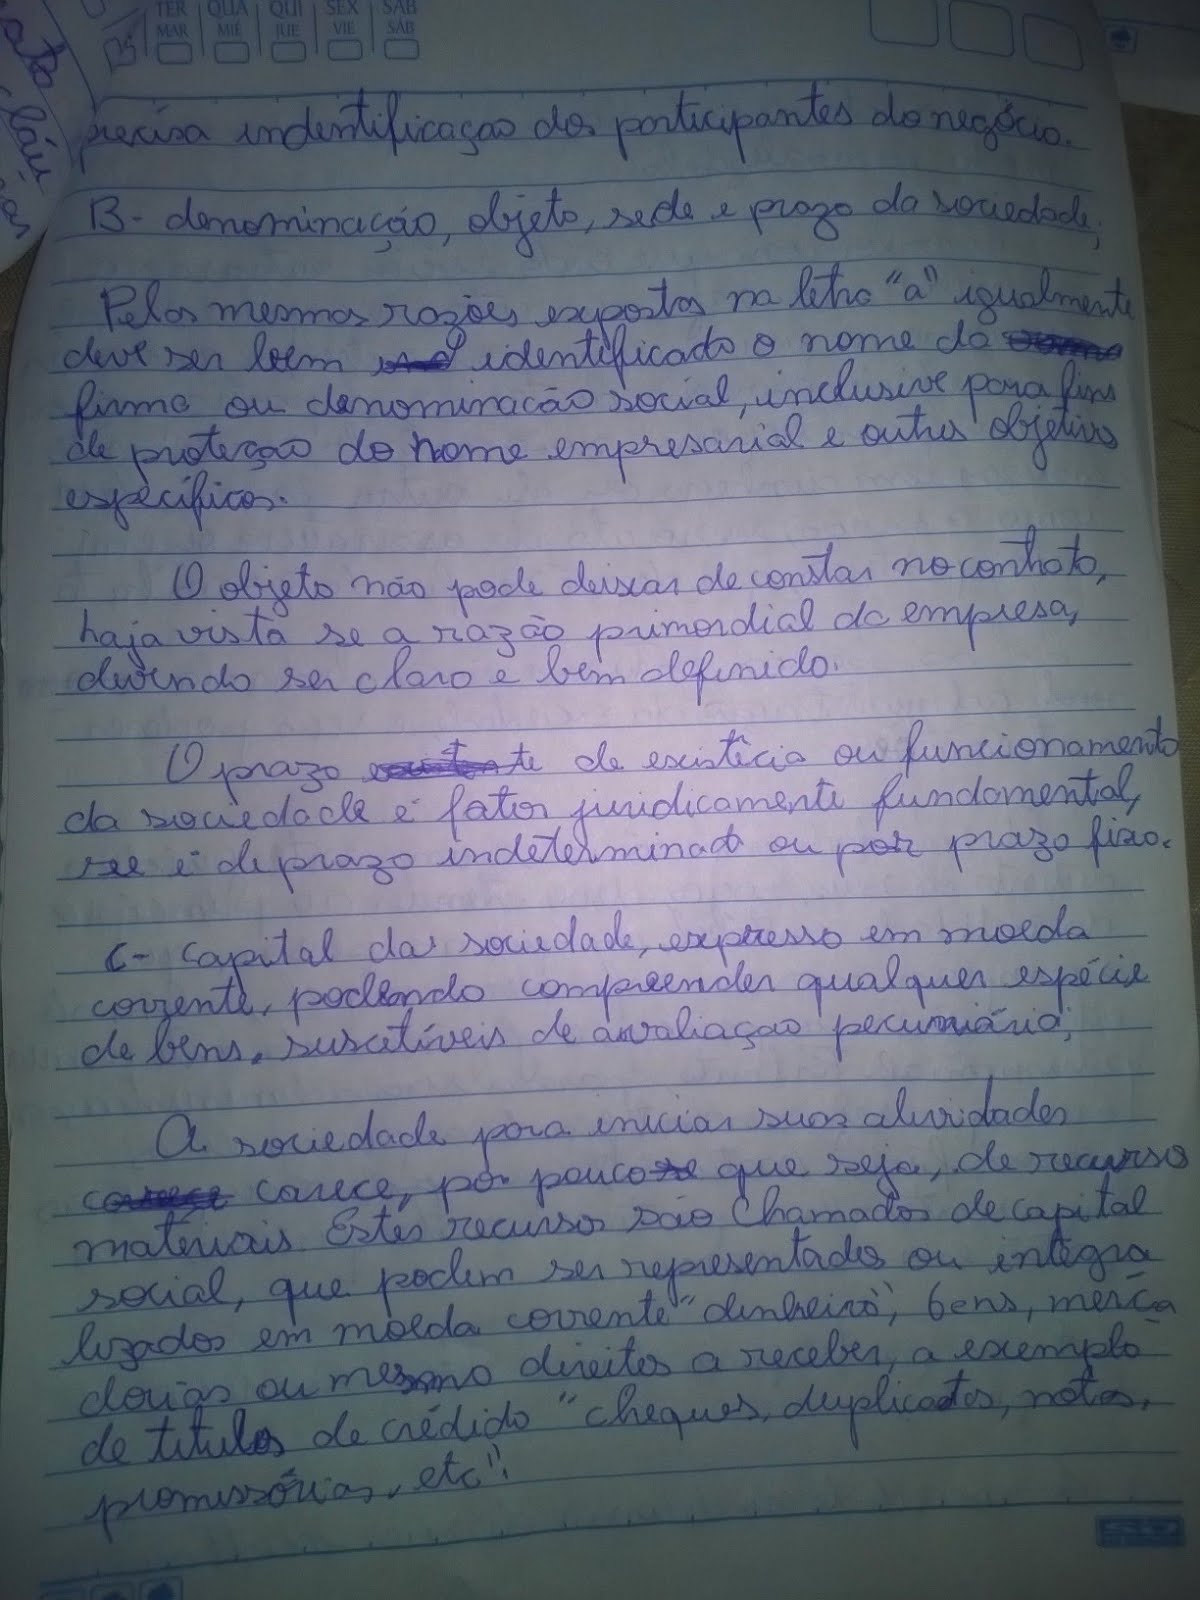 TER QUA QUI SEX SAB
MAR MIÉ JUE VIE SÁB
precisa indentificaçao dos participantes do negócio.
B- denominação, objeto, sede e prazo da sociedade;
Pelas mesmas razões expostas na letra "a" igualmente
deve ser bem identificado o nome da
firma ou denominacão social, inclusive para fins
de proteção do nome empresarial e outros objetivos
específicos.
O objeto não pode deixar de constar no contrato,
haja vista se a razão primordial da empresa,
devendo ser claro e bem definido.
O prazo de existêcia ou funcionamento
da sociedade é fator juridicamente fundamental,
see é de prazo indeterminado ou por prazo fixo.
C- capital da sociedade, expresso em moeda
corrente, podendo compreender qualquer espécie
de bens, suscetíveis de avaliaçao pecuniária;
A sociedade para iniciar suas atividades
carece, por pouco que seja, de recurso
matériais. Estes recursos são chamados de capital
social, que podem ser representados ou integra
lizados em moeda corrente "dinheiro", bens, merca
dorias ou mesmo direitos a receber, a exemplo
de titulos de crédido "cheques, duplicatas, notas,
promissórias, etc".